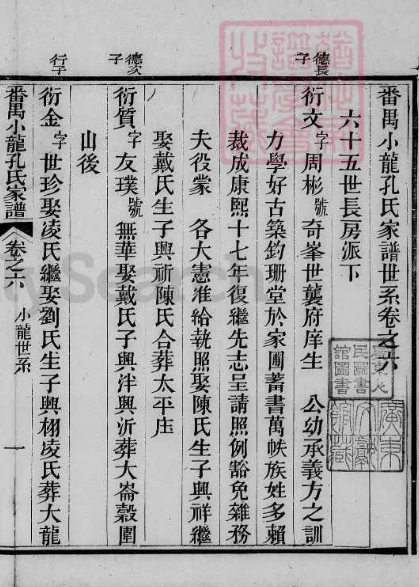 番禺小龍孔氏家譜世系卷之六
六十五世長房派下
德長子
衍文字周彬號奇峯世襲府庠生 公幼承義方之訓
力學好古築鈞珊堂於家圃蓄書萬帙族姓多賴
裁成康熙十七年復繼先志呈請照例豁免雜務
夫役蒙 各大憲准給執照娶陳氏生子興祥繼
娶戴氏生子興祈陳氏合葬太平庄
德次子
衍質字友璞號無華娶戴氏子興泮興沂葬大崙穀圍
山後
行子
衍金字世珍娶凌氏繼娶劉氏生子興栩凌氏葬大龍
番禺小龍孔氏家譜 卷之六 小龍世系 一
廣東人民圖書館圖書